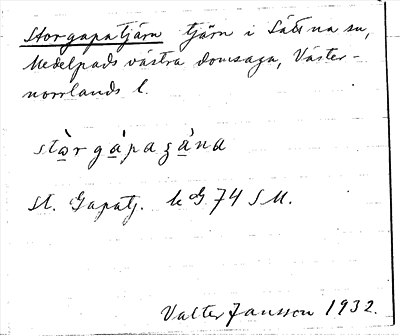 Storgapatjärn tjärn i Sättna sn,
Medelpads västra domsaga, Väster-
norrlands l.
stὼrgápaʒána
St. Gapatj. k G 74 SM.
Valter Jansson 1932.